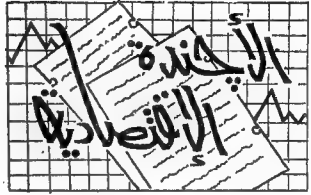 الأجندة
الاقتصادية